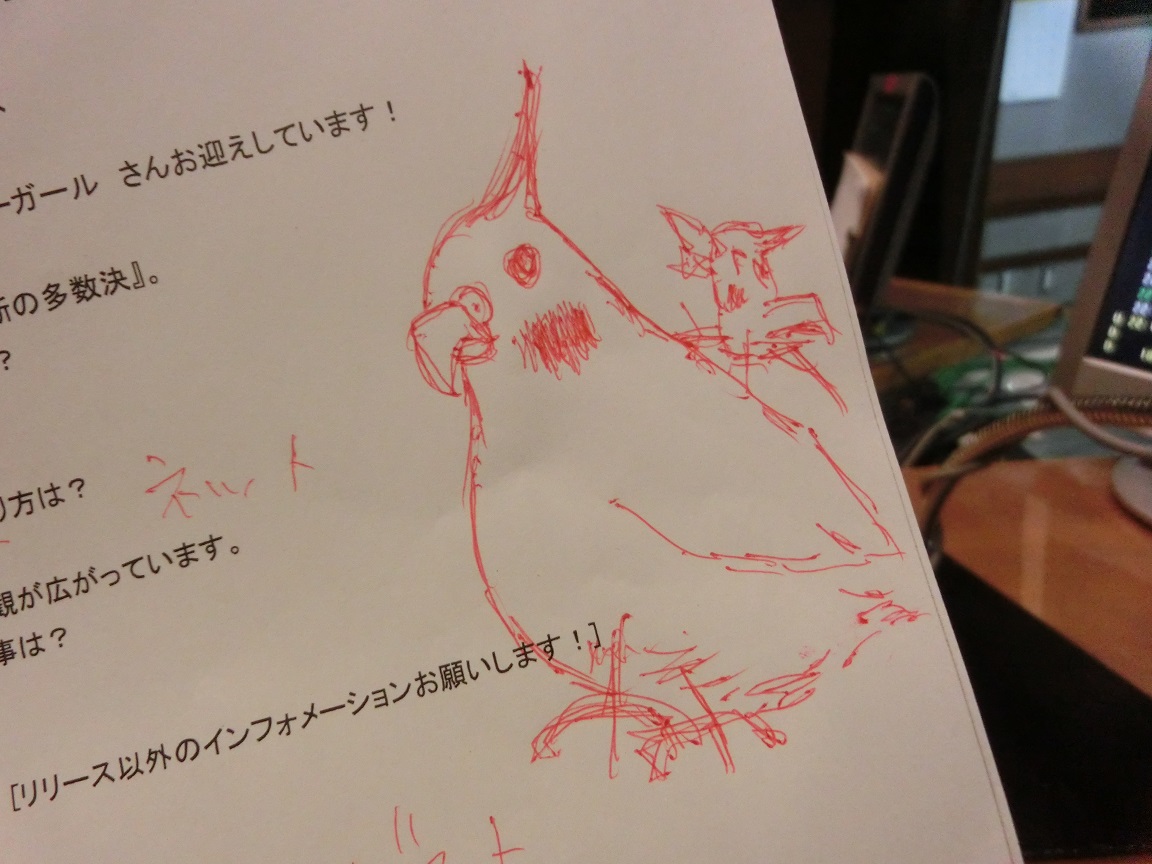 ーガール さんお迎えしています！
の多数決』。
？
方は？ ネット
観が広がっています。
事は？
[リリース以外のインフォメーションお願いします！]